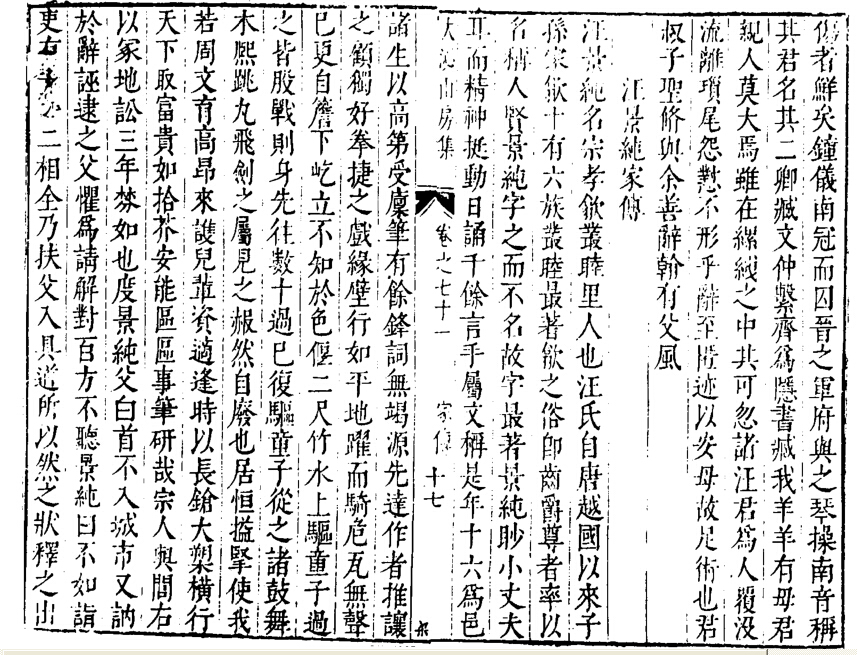 傷者鮮矣鐘儀南冠而囚晉之軍府與之琴操南音稱
其君名其二卿臧文仲繫齊爲隱書臧我羊羊有母君
親人莫大焉雖在縲紲之中其可忽諸汪君爲人覆没
流離瑣尾怨懟不形乎辭至晦迹以安母故是術也君
叔子聖脩與余善辭翰有父風
汪景純家傳
汪景純名宗孝歙叢睦里人也汪氏自唐越國以來子
孫家歙十有六族叢睦最著歙之俗卽齒爵尊者率以
名稱人賢景純字之而不名故字最著景純眇小丈夫
耳而精神挺動日誦千餘言手屬文稱是年十六爲邑
大泌山房集 卷之七十一 家傳 十七
諸生以高第受廩筆有餘鋒詞無竭源先達作者推讓
之顧獨好拳捷之戲緣壁行如平地躍而騎危瓦無聲
已更自簷下屹立不知於色偃二尺竹水上驅童子過
之皆股戰則身先往數十過已復驅童子從之諸鼓舞
木熙跳丸飛劍之屬見之赧然自廢也居恒搤掔使我
若周文育高昂來護兒輩資遒逢時以長鎗大槊橫行
天下取富貴如拾芥安能區區事筆研哉宗人與閭右
以冢地訟三年棼如也度景純父白首不入城市又訥
於辭誣逮之父懼爲請解對百方不聽景純曰不如詣
吏二相全乃扶父入具道所以然之狀釋之出